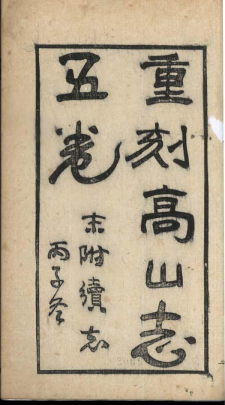 重刻高山志
五卷
末附續志
丙子冬